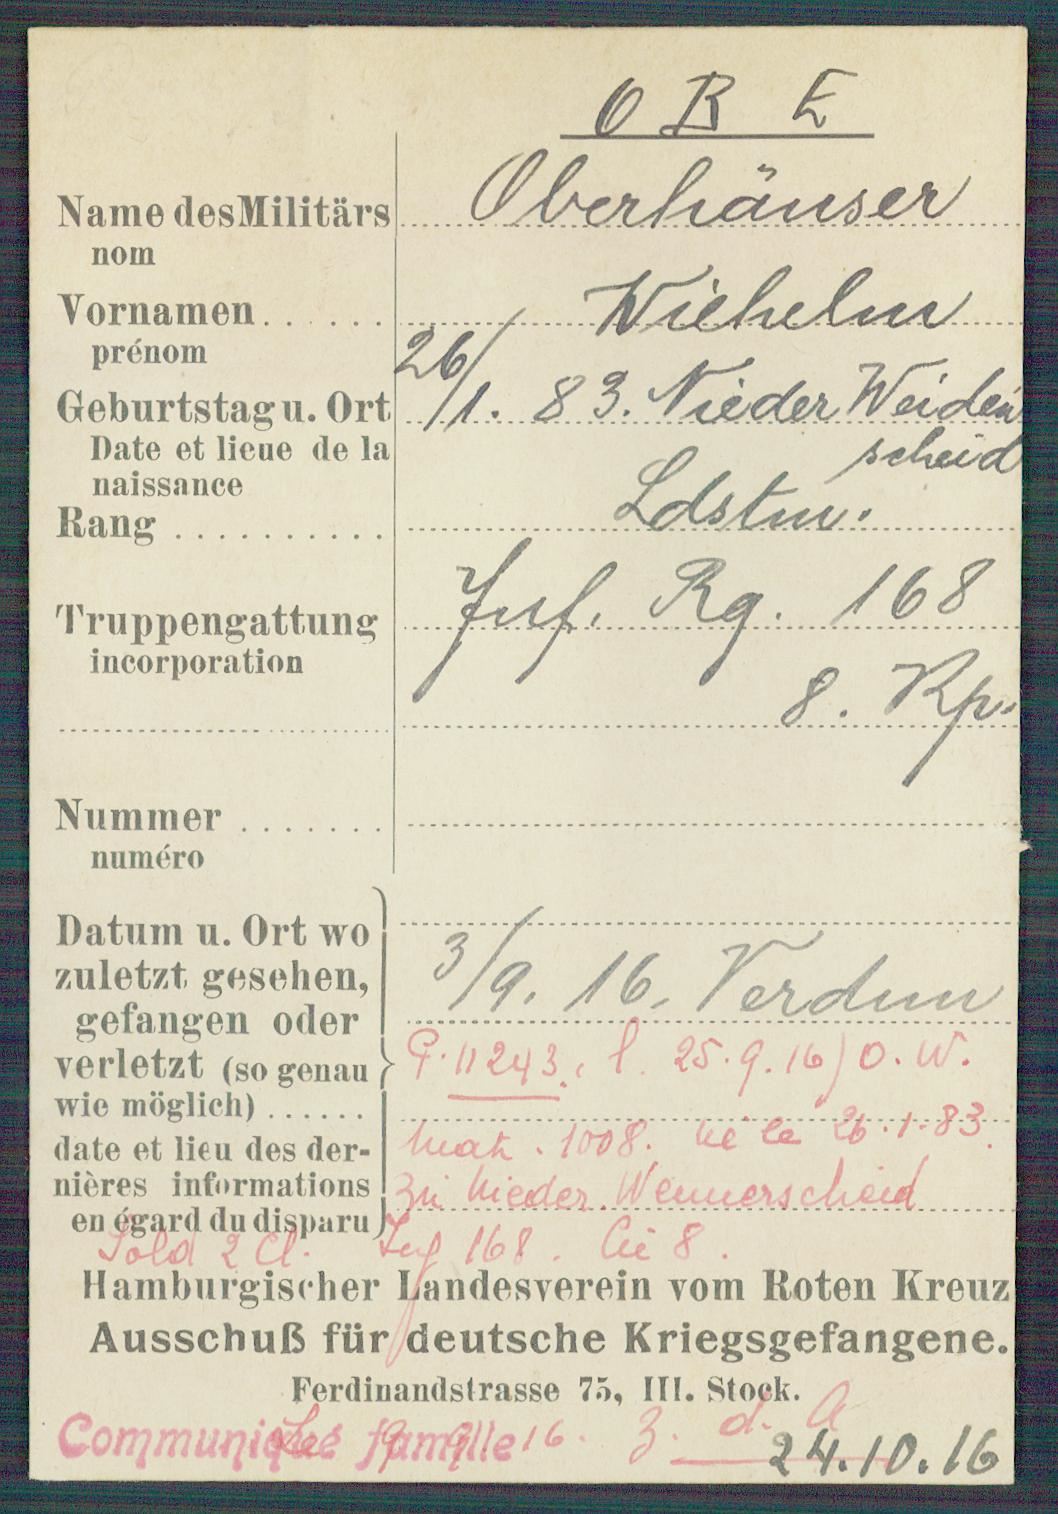 O B E
Name des Militärs Oberhäuser
nom
Vornamen Wilhelm
prénom
Geburtstag u. Ort 26/1. 83. Nieder Weiden
Date et lieue de la scheid
naissance
Rang Ldstm.
Truppengattung Inf. Rg. 168
incorporation
8. Kp.
Nummer
numéro
Datum u. Ort wo
zuletzt gesehen, 3/9. 16. Verdun
gefangen oder
verletzt (so genau P. 11243. l. 25.9.16) O. W.
wie möglich)
date et lieu des der- Mak. 1008. né le 26.1.83.
nières informations zu Nieder. Wennerscheid
en égard du disparu
Sold 2 Cl. Inf 168. Cie 8.
Hamburgischer Landesverein vom Roten Kreuz
Ausschuß für deutsche Kriegsgefangene.
Ferdinandstrasse 75, III. Stock.
Communiqué famille 9. 16. 3. d. A
24.10.16